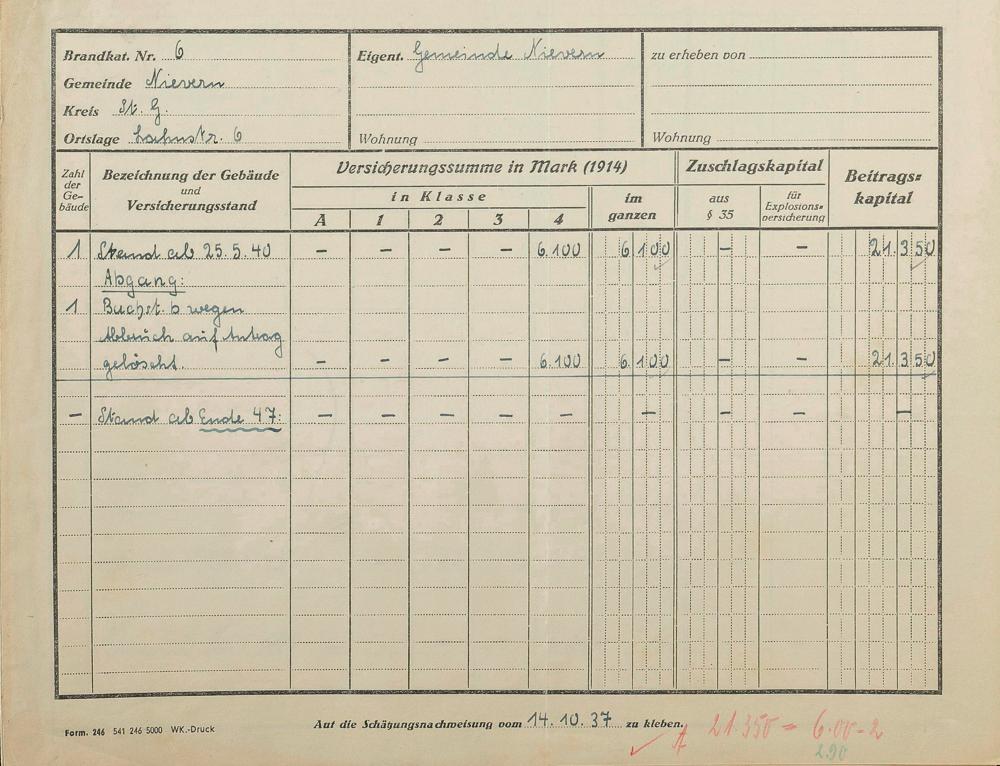 Brandkat. Nr. 6
Gemeinde Nievern
Kreis St. G.
Ortslage Lahnstr. 6
Eigent. Gemeinde Nievern
Wohnung
zu erheben von
Wohnung
Zahl der Ge-bäude
Bezeichnung der Gebäude und Versicherungsstand
Versicherungssumme in Mark (1914)
in Klasse
A 1 2 3 4
im ganzen
Zuschlagskapital
aus § 35
für Explosions-versicherung
Beitrags-kapital
1 Stand ab 25.5.40 – – – – 6.100 6 100 – – 21.350
Abgang:
1 Buchst. b wegen
Abbruch auf Antrag
gelöscht. – – – – 6.100 6 100 – – 21.350
– Stand ab Ende 47: – – – – – – – – –
Form. 246 541 246 5000 WK.-Druck
Auf die Schätzungsnachweisung vom 14.10.37 zu kleben.
21.350 =
2.90